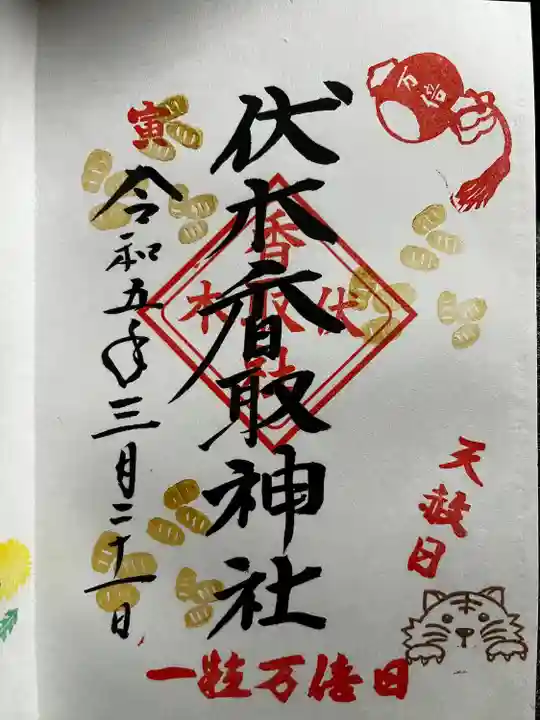 万倍
伏木香取神社
香取
伏木
天赦日
寅
令和五年三月二十一日
一粒万倍日